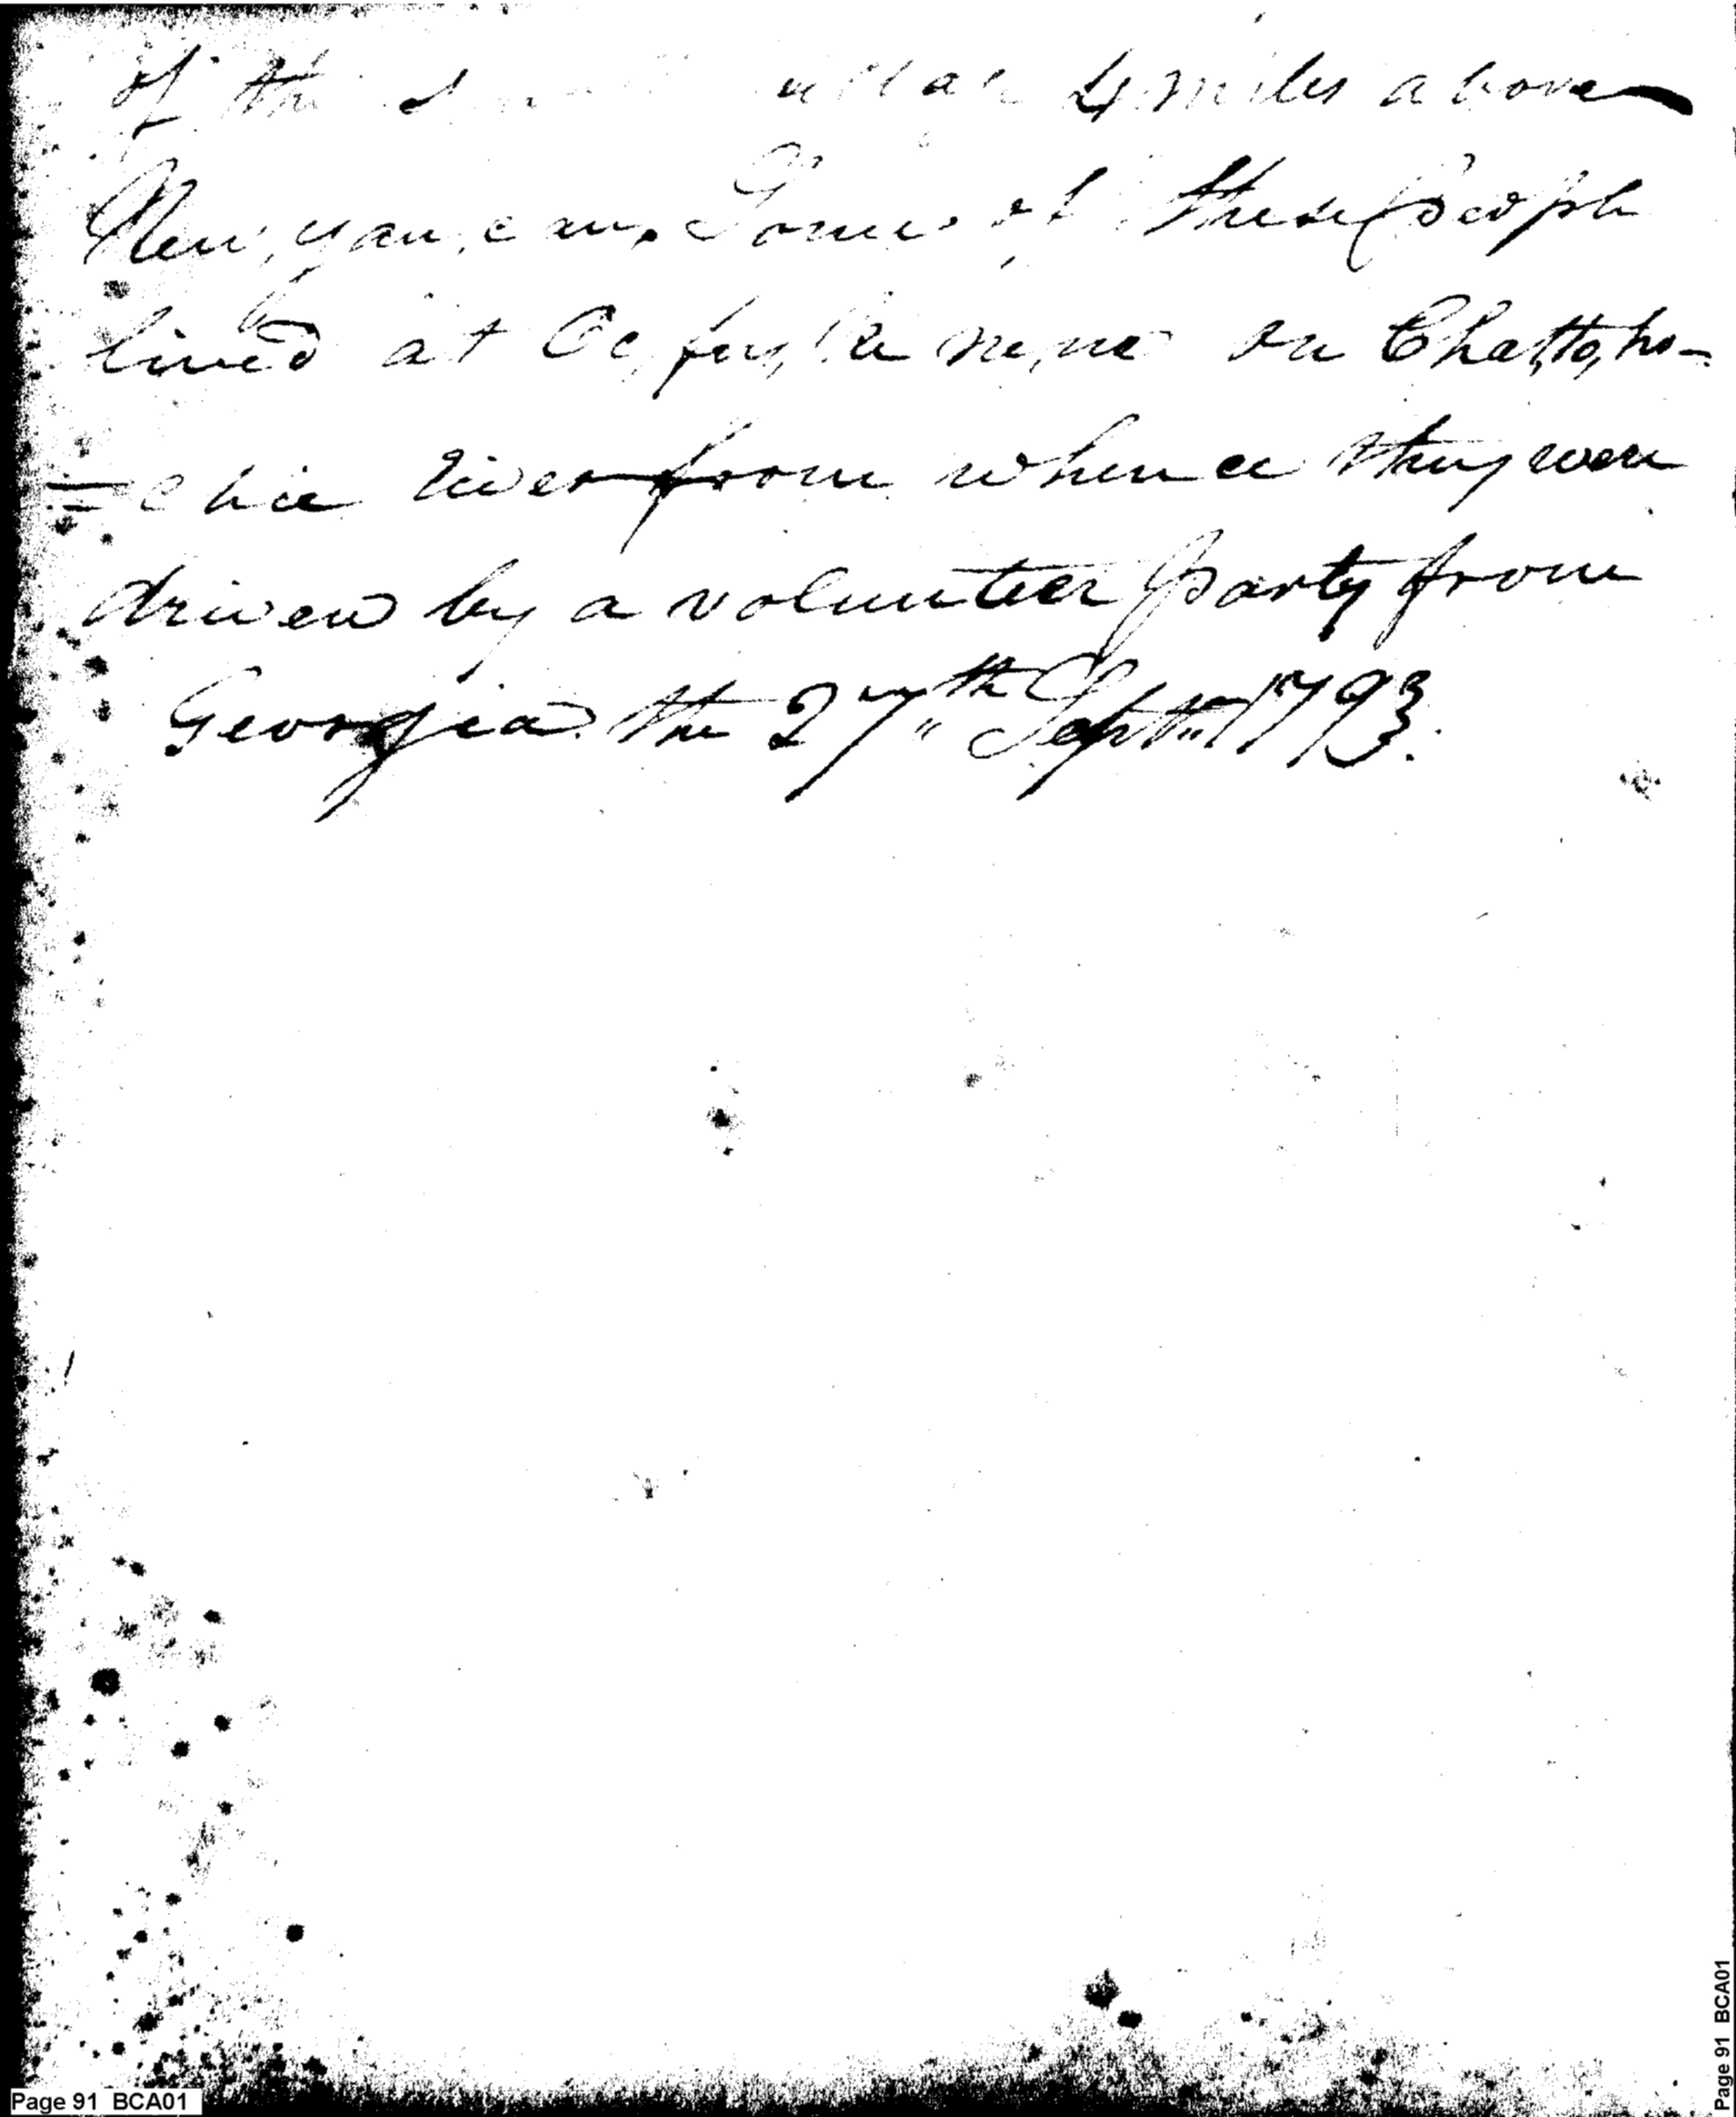 of the village 4 miles above
New,yau,cau. Some of these people
lived at Oc,fus,ke ne,ne on Chat,to,ho-
=chie river from whence they were
driven by a volunteer party from
Georgia the 27th Septr 1793.
Page 91 BCA01
Page 91 BCA01